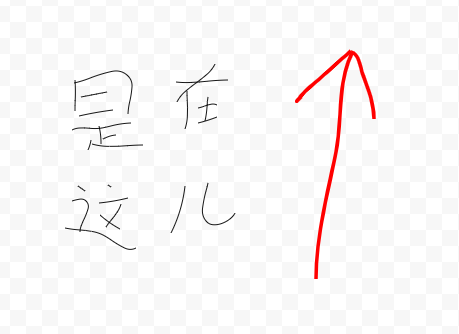 是在
这儿